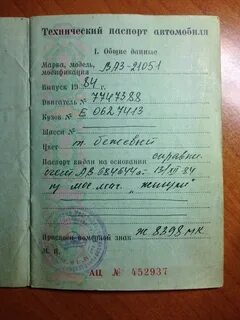 Технический паспорт автомобиля
I. Общие данные
Марка, модель,
модификация ВАЗ-21051
Выпуск 1984 г.
Двигатель № 7747388
Кузов № Е 0627413
Шасси №
Цвет т. бежевый
Паспорт выдан на основании справки
счета АВ 684644 от 13/XII 84
маг. "жигули"
Присвоен номерной знак
ж 8398 МК
М. П.
АЦ № 452937